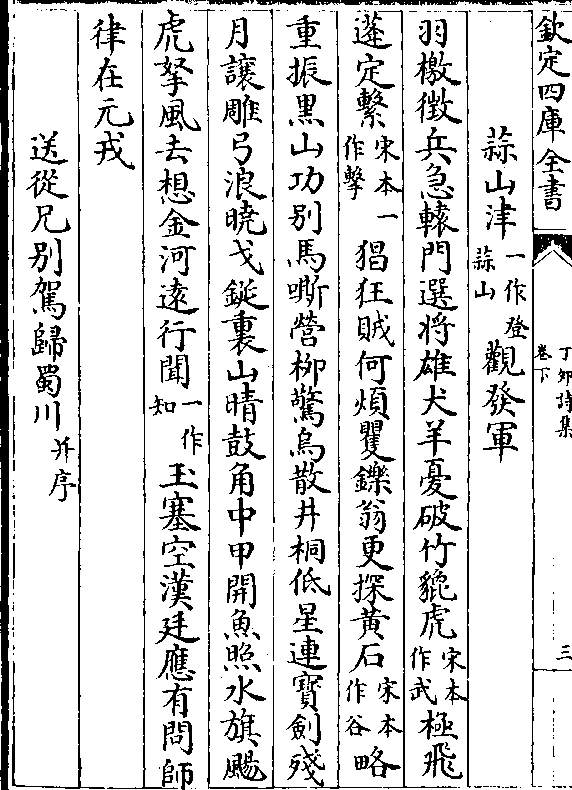 欽定四庫全書
丁卯詩集
卷下
三
蒜山津一作登蒜山觀發軍
羽檄徵兵急轅門選將雄犬羊憂破竹貔虎宋本作武極飛
蓬定繫宋本一作擊猖狂賊何煩矍鑠翁更探黃石宋本作谷略
重振黑山功别馬嘶營柳驚烏散井桐低星連寳劍殘
月讓雕弓浪曉戈鋋裏山晴鼓角中甲開魚照水旗颺
虎拏風去想金河遠行聞一作知玉塞空漢廷應有問師
律在元戎
送從兄别駕歸蜀川并序